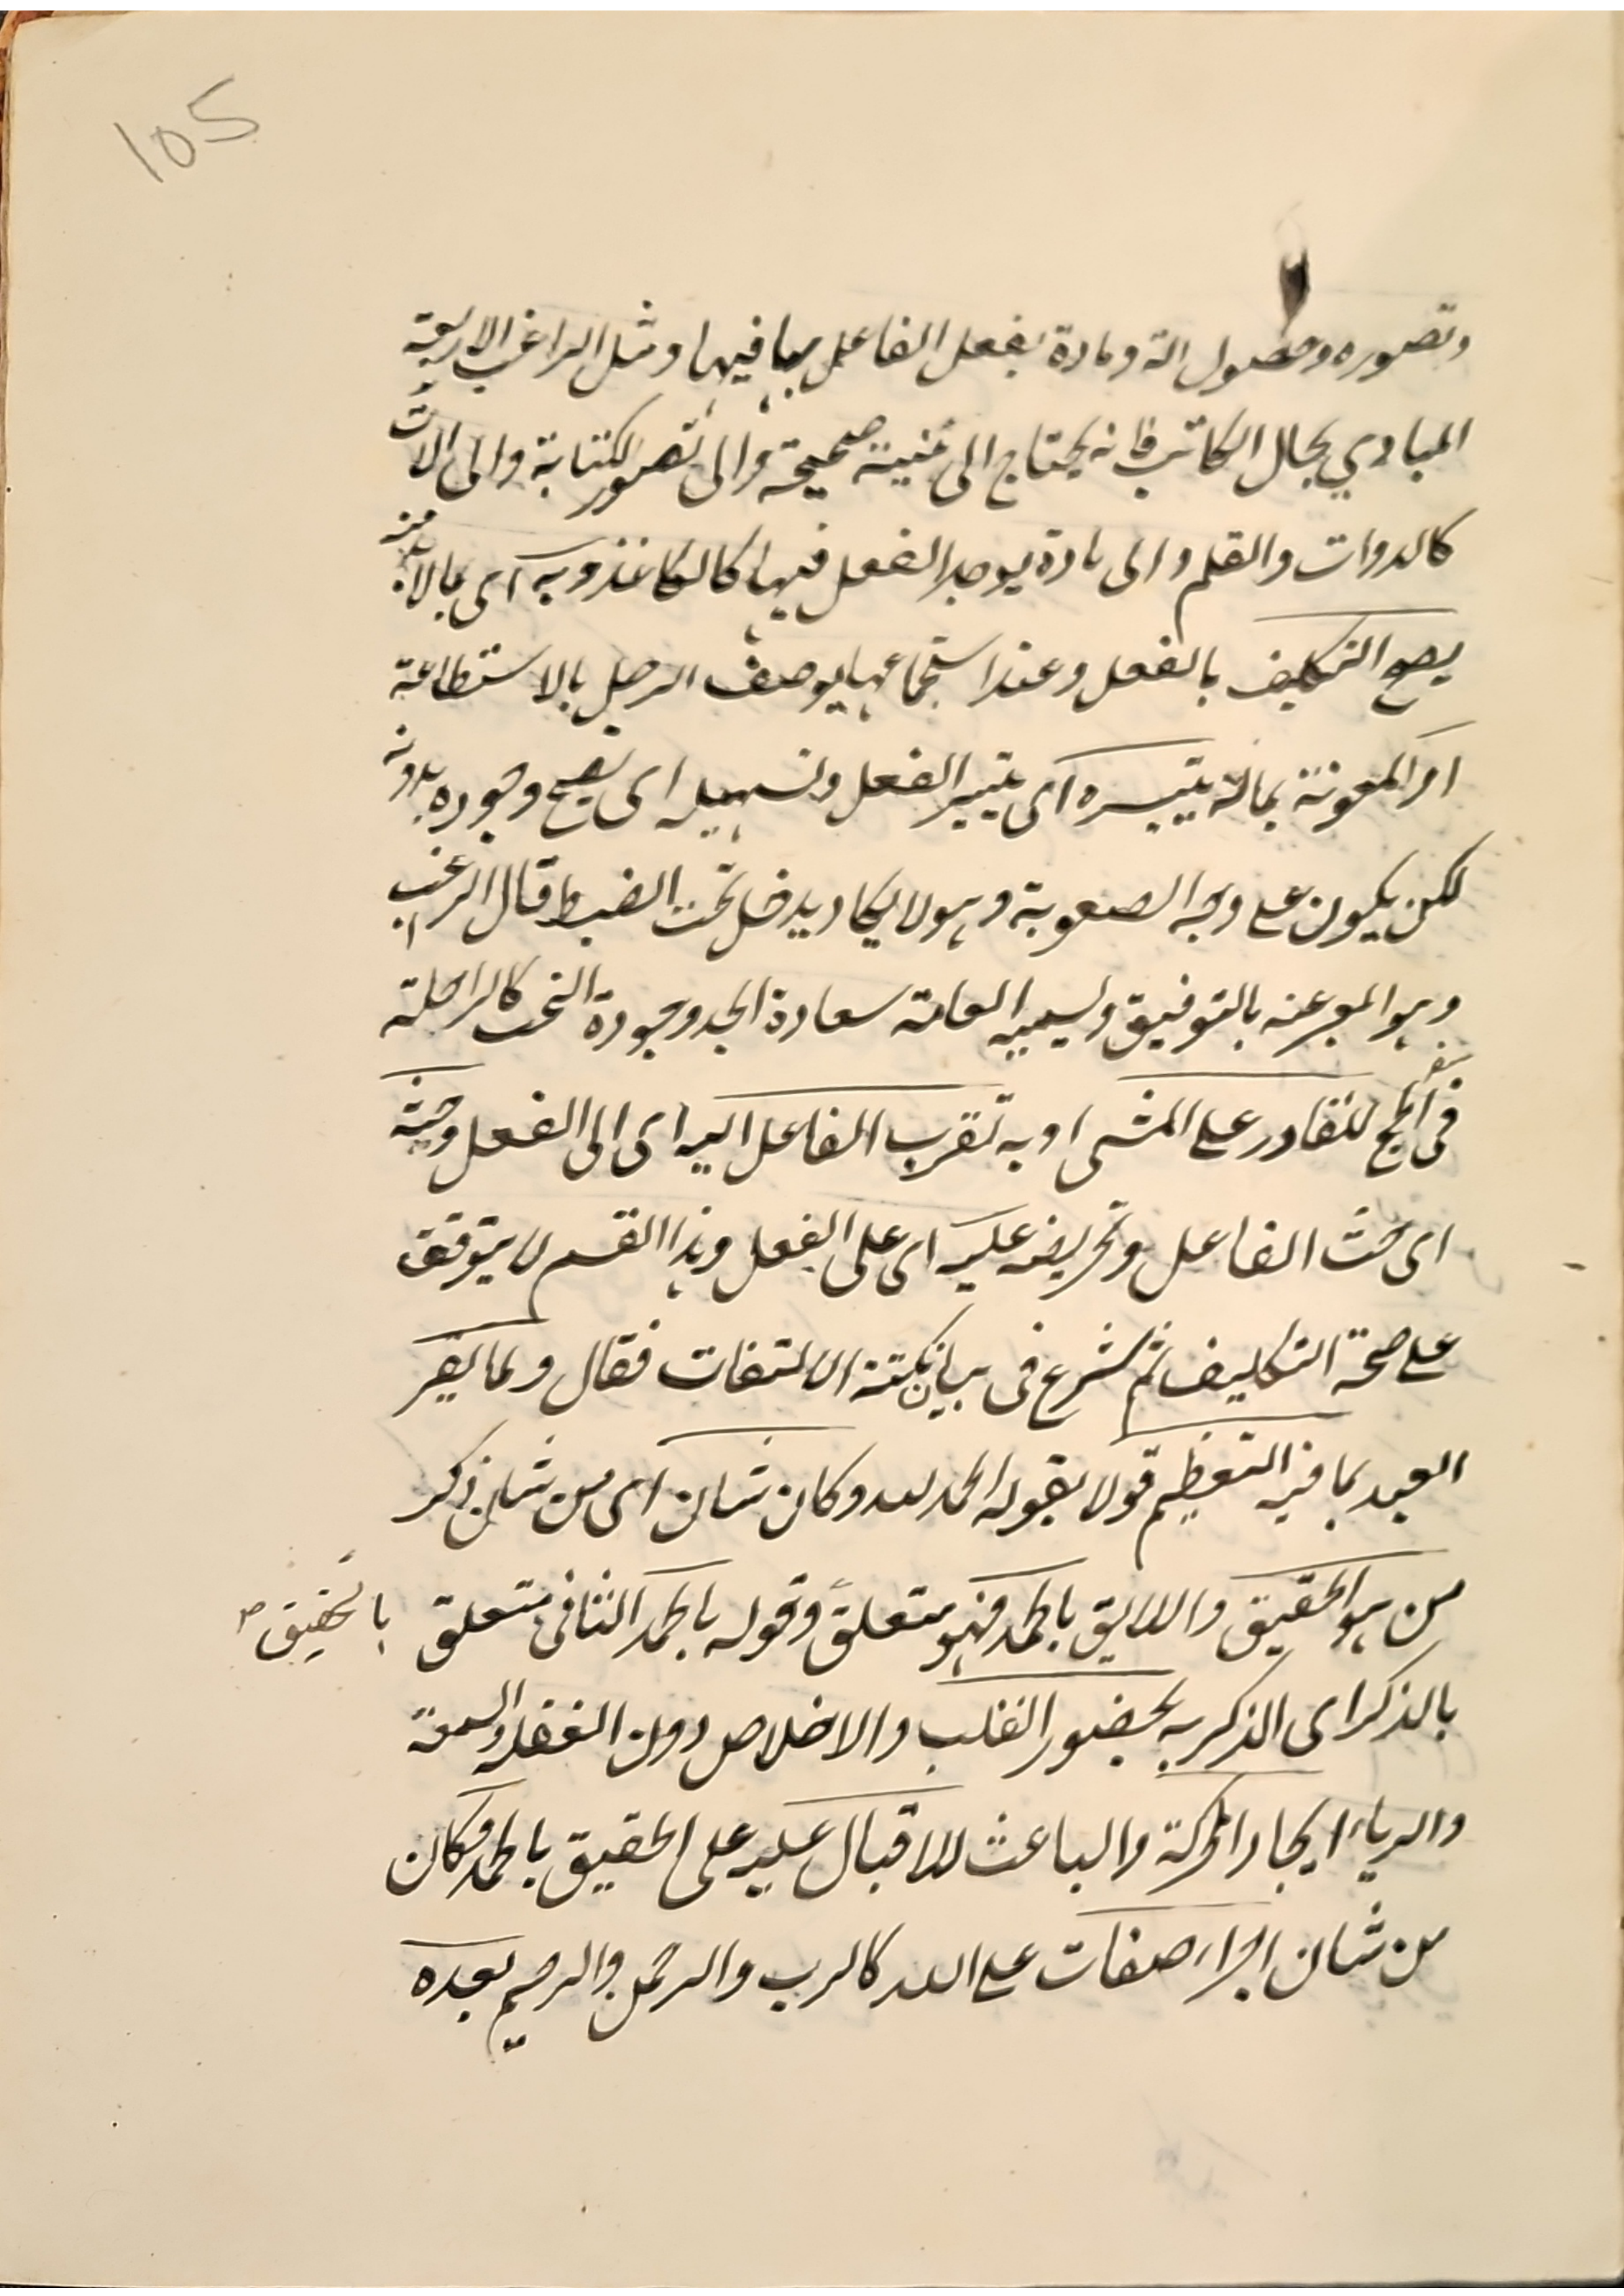 105
وتصوره وحصول الة ومادة يفعل الفاعل بها فيها ومثل الراغب الاربعة
المبادي بحال الكاتب فانه يحتاج الى بنية صحيحة والى تصور الكتابة والى الات
كالدوات والقلم والى مادة يوجد الفعل فيها كالكاغذ وبه اى بالا
يصح التكليف بالفعل وعند استجماعها يوصف الرجل بالاستطاعة
او المعونة بمالة يتيسره اى يتيسر الفعل وتسهيله اى يصح وجوده بدونه
لكن يكون على وجه الصعوبة وهو لا يكاد يدخل تحت الضبط قال الراغب
وهو المعبر عنه بالتوفيق ويسميه العامة سعادة الجد وجودة البخت كالراحلة
فى سفر الحج للقادر على المشى او به تقرب الفاعل اليه اى الى الفعل وحثه
اى حث الفاعل وتحريضه عليه اى على الفعل وهذا القسم لا يتوقف
على صحة التكليف ثم شرع فى بيان نكتة الالتفات فقال ولما يقر
العبد بما فيه التعظيم قولا بقوله الحمد لله وكان شان اى من شان ذكر
من هو الحقيق واللايق بالحمد فهو متعلق وقوله بالحمد الثانى متعلق بالحقيق صح
بالذكر اى الذكر به بحضور القلب والاخلاص دون الغفلة والسمعة
والرياء ايجاد الحركة والباعث للاقبال عليه على الحقيق بالحمد وكان
من شان اجراء صفات على الله كالرب والرحمن والرحيم بعده